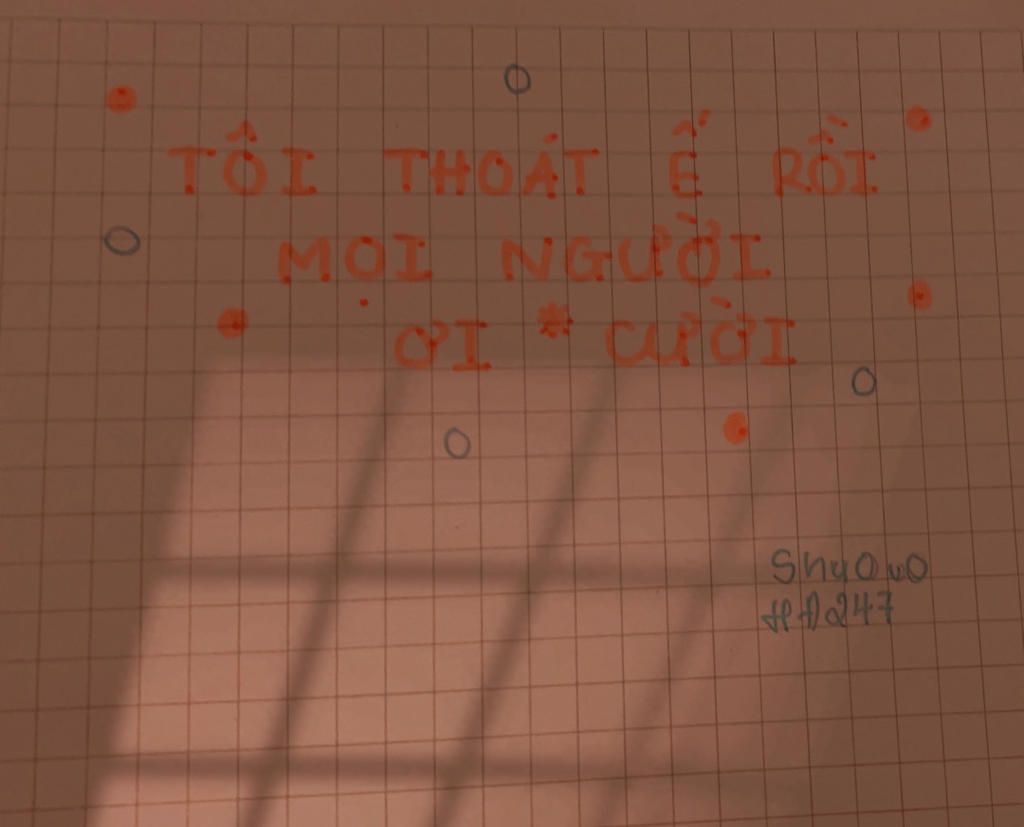 TÔI THOÁT Ế RỒI
MỌI NGƯỜI
ƠI * CƯỜI
ShyOvO
HA247